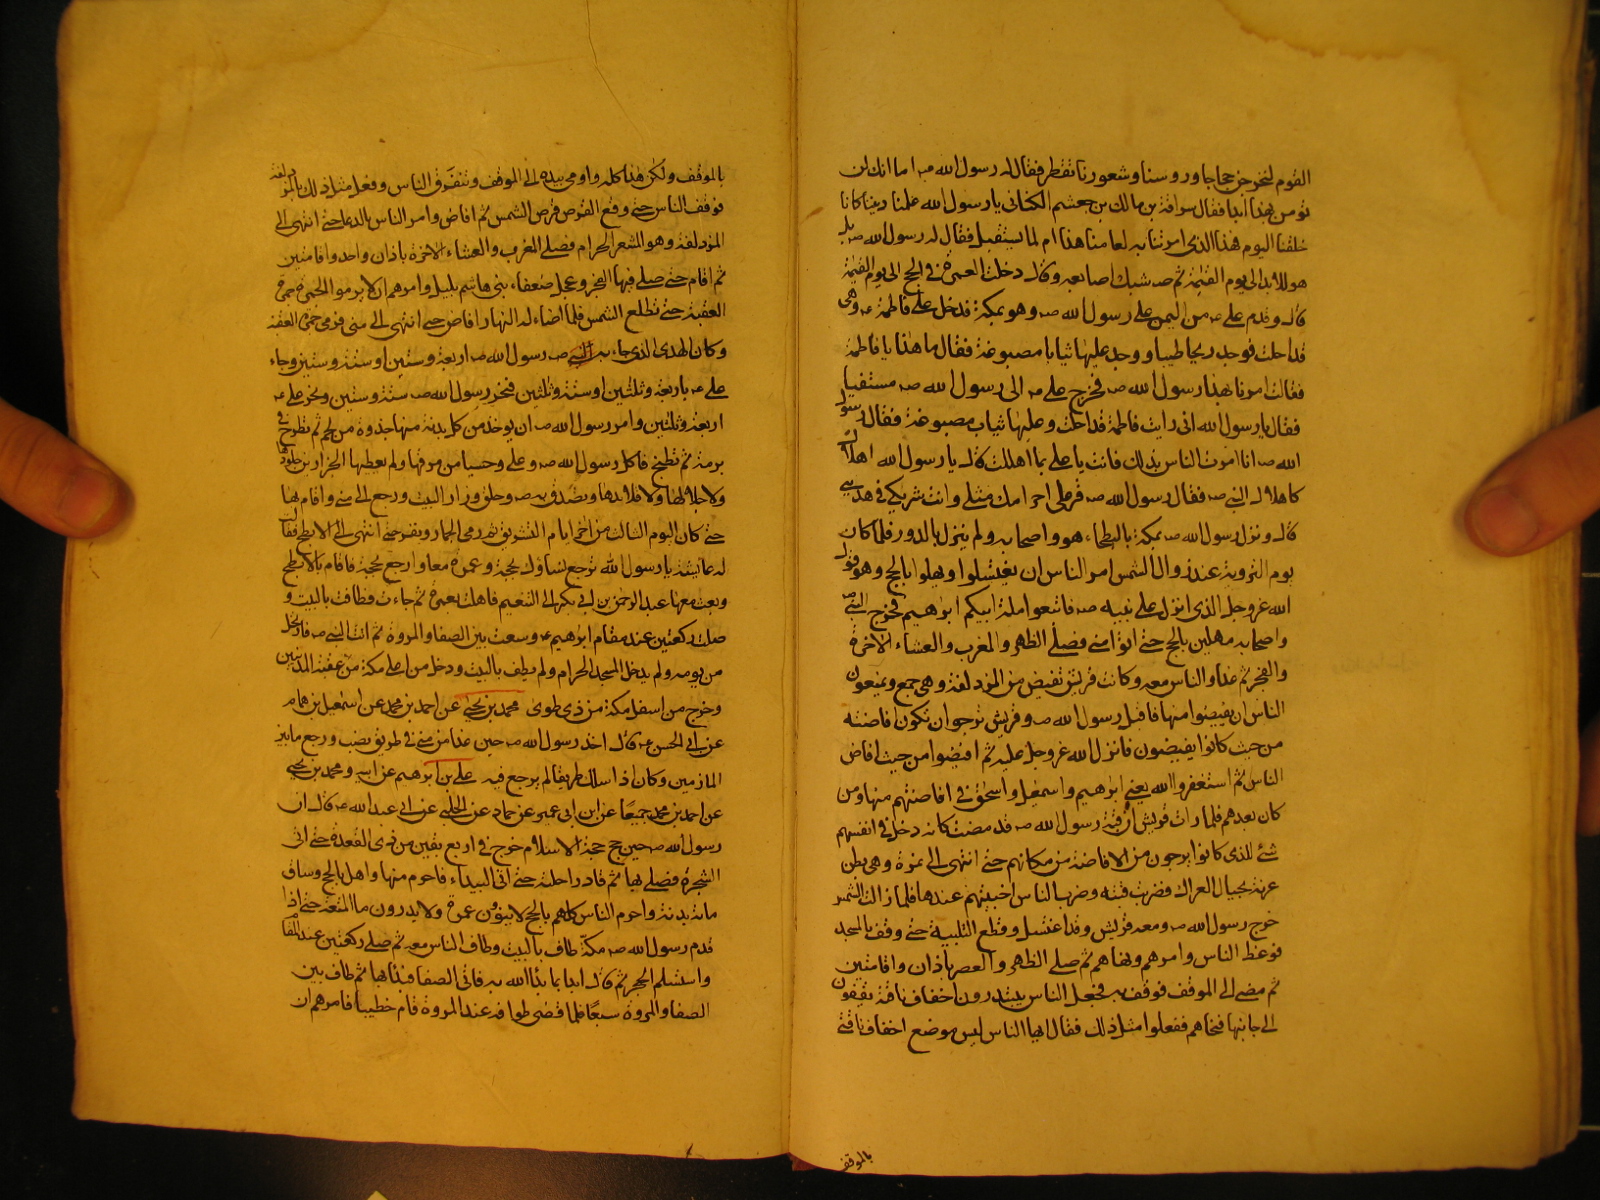 القوم لنخرجن حجاجا ورؤسنا وشعورنا تقطر فقال له رسول الله صہ اما انك لن
تؤمن بهذا ابدا فقال سراقة بن مالك بن جعشم الكنانى يا رسول الله علمنا ديننا كانا
خلقنا اليوم هذا الذى امرتنا به لعامنا هذا ام لما يستقبل فقال له رسول الله صہ بل
هو للابد الى يوم القيمة ثم صہ شبك اصابعه وقال دخلت العمرة فى الحج الى يوم القيمة
قال وقدم على عہ من اليمن على رسول الله صہ وهو بمكة فدخل على فاطمة عہ وهى
قد احلت فوجد ريحا طيبا ووجد عليها ثيابا مصبوغة فقال ما هذا يا فاطمة
فقالت امرنا بهذا رسول الله صہ فخرج على عہ الى رسول الله صہ مستفتيا
فقال يا رسول الله انى رايت فاطمة قد احلت وعليها ثياب مصبوغة فقال رسول
الله صہ انا امرت الناس بذلك فانت يا على بما اهللت قال يا رسول الله اهلالا
كاهلال النبى صہ فقال رسول الله صہ قر على احرامك مثلى وانت شريكى فى هديى
قال ونزل رسول الله صہ بمكة بالبطحاء هو واصحابه ولم ينزل بالدور فلما كان
يوم التروية عند زوال الشمس امر الناس ان يغتسلوا ويهلوا بالحج وهو قول
الله عز وجل الذى انزل على نبيه صہ فاتبعوا ملة ابيكم ابرهيم فخرج النبى صہ
واصحابه مهلين بالحج حتى اتوا منى فصلى الظهر والمغرب والعشاء الاخرة
والفجر ثم غدا والناس معه وكانت قريش تفيض من المزدلفة وهى جمع ويمنعون
الناس ان يفيضوا منها فاقبل رسول الله صہ وقريش ترجو ان تكون افاضته
من حيث كانوا يفيضون فانزل الله عز وجل عليه ثم افيضوا من حيث افاض
الناس ثم استغفروا الله يعنى ابرهيم واسمعيل واسحق فى افاضتهم منها ومن
كان بعدهم فلما رات قريش ان قبة رسول الله صہ قد مضت كانه دخل فى انفسهم
شئ للذى كانوا يرجون من الافاضة من مكانهم حتى انتهى الى نمرة وهى بطن
عرنة بحيال الاراك فضربت قبته وضرب الناس اخبيتهم عندها فلما زالت الشمس
خرج رسول الله صہ ومعه قريش وقد اغتسل وقطع التلبية حتى وقف بالمسجد
فوعظ الناس وامرهم ونهاهم ثم صلى الظهر والعصر باذان واقامتين
ثم مضى الى الموقف فوقف به فجعل الناس يبتدرون اخفاف ناقته يقفون
الى جانبها فنحاها ففعلوا مثل ذلك فقال ايها الناس ليس موضع اخفاف ناقتى
بالموقف
بالموقف ولكن هذا كله واومى بيده الى الموقف وتفرق الناس وفعل مثل ذلك بالمزدلفة
فوقف الناس حتى وقع القرص قرص الشمس ثم افاض وامر الناس بالدعة حتى انتهى الى
المزدلفة وهو المشعر الحرام فصلى المغرب والعشاء الاخرة باذان واحد واقامتين
ثم اقام حتى صلى فيها الفجر وعجل ضعفاء بنى هاشم بليل وامرهم ان لا يرموا الجمرة جمرة
العقبة حتى تطلع الشمس فلما اضاء له النهار افاض حتى انتهى الى منى فرمى جمرة العقبة
وكان الهدى الذى جاء به رسول الله صہ اربعة وستين او ستة وستين وجاء
على عہ باربعة وثلثين او ستة وثلثين فنحر رسول الله صہ ستة وستين ونحر على عہ
اربعة وثلثين وامر رسول الله صہ ان يوخذ من كل بدنة منها جذوة من لحم ثم تطرح فى
برمة ثم تطبخ فاكل رسول الله صہ وعلى وحسيا من مرقها ولم يعطيا الجزارين جلودها
ولا جلالها ولا قلايدها وتصدق به صہ وحلق وزار البيت ورجع الى منى واقام بها
حتى كان اليوم الثالث من اخر ايام التشريق ثم رمى الجمار ونفر حتى انتهى الى الابطح فقالت
له عايشة يا رسول الله ترجع نساؤك بحجة وعمرة معا وارجع بحجة فاقام بالابطح
وبعث معها عبد الرحمن بن ابى بكر الى التنعيم فاهلت بعمرة ثم جاءت وطافت بالبيت و
صلت ركعتين عند مقام ابرهيم عہ وسعت بين الصفا والمروة ثم اتت النبى صہ فارتحل
من يومه ولم يدخل المسجد الحرام ولم يطف بالبيت ودخل من اعلى مكة من عقبة المدنيين
وخرج من اسفل مكة من ذى طوى محمد بن يحيى عن احمد بن محمد عن اسمعيل بن همام
عن ابى الحسن عہ قال اخذ رسول الله صہ حين غدا من منى فى طريق ضب ورجع ما بين
المازمين وكان اذا سلك طريقا لم يرجع فيه على بن ابرهيم عن ابيه ومحمد بن يحيى
عن احمد بن محمد جميعا عن ابن ابى عمير عن حماد عن الحلبى عن ابى عبد الله عہ قال ان
رسول الله صہ حين حج حجة الاسلام خرج فى اربع بقين من ذى القعدة حتى اتى
الشجرة فصلى بها ثم قاد راحلته حتى اتى البيداء فاحرم منها واهل بالحج وساق
مائة بدنة واحرم الناس كلهم بالحج لا ينوون عمرة ولا يدرون ما المتعة حتى اذا
قدم رسول الله صہ مكة طاف بالبيت وطاف الناس معه ثم صلى ركعتين عند المقام
واستلم الحجر ثم قال ابدا بما بدا الله به فاتى الصفا فبدا بها ثم طاف بين
الصفا والمروة سبعا فلما قضى طوافه عند المروة قام خطيبا فامرهم ان